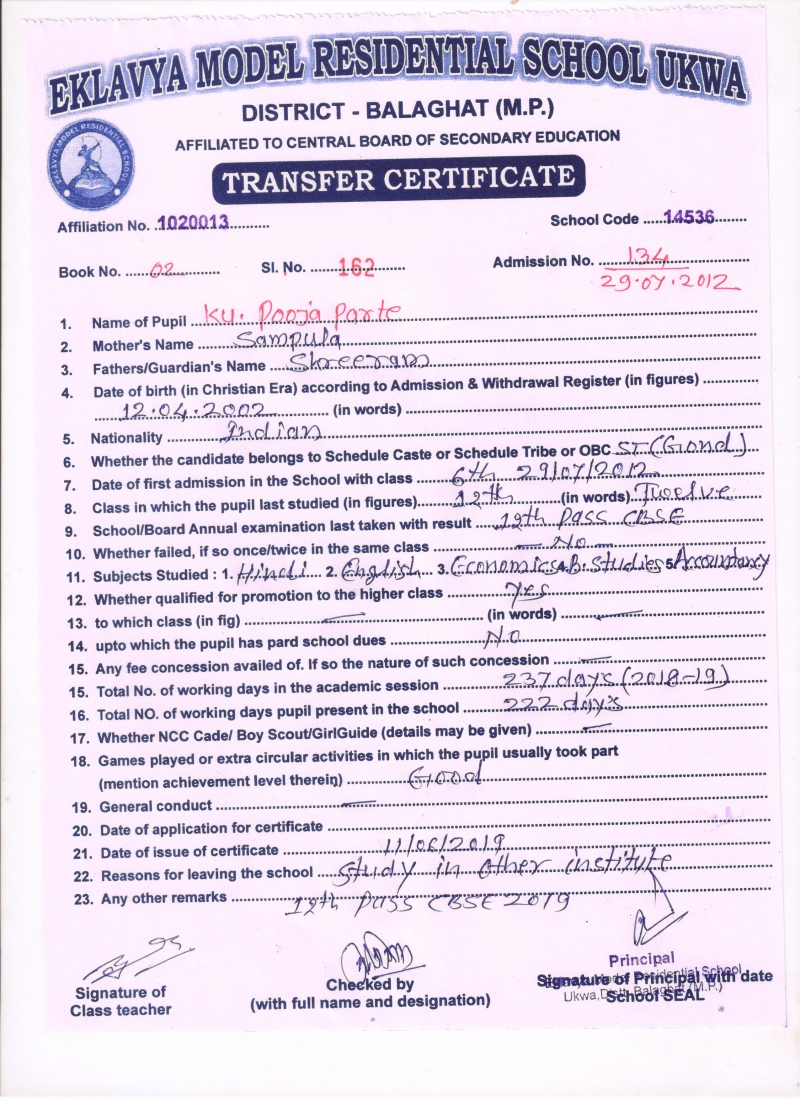 EKLAVYA MODEL RESIDENTIAL SCHOOL UKWA
DISTRICT - BALAGHAT (M.P.)
AFFILIATED TO CENTRAL BOARD OF SECONDARY EDUCATION
EKLAVYA MODEL RESIDENTIAL SCHOOL
TRANSFER CERTIFICATE
Affiliation No. 1020013 School Code 14536
Book No. 02 Sl. No. 162 Admission No. 134
29.07.2012
1. Name of Pupil KU. Pooja Parte
2. Mother's Name Sampula
3. Fathers/Guardian's Name Shreeram
4. Date of birth (in Christian Era) according to Admission & Withdrawal Register (in figures)
12.04.2002 (in words)
5. Nationality Indian
6. Whether the candidate belongs to Schedule Caste or Schedule Tribe or OBC ST (Gond)
7. Date of first admission in the School with class 6th 29/07/2012
8. Class in which the pupil last studied (in figures) 12th (in words) Twelve
9. School/Board Annual examination last taken with result 12th Pass CBSE
10. Whether failed, if so once/twice in the same class No
11. Subjects Studied : 1. Hindi 2. English 3. Economics 4. B. Studies 5. Accountancy
12. Whether qualified for promotion to the higher class Yes
13. to which class (in fig) (in words)
14. upto which the pupil has pard school dues No
15. Any fee concession availed of. If so the nature of such concession
15. Total No. of working days in the academic session 237 days (2018-19)
16. Total NO. of working days pupil present in the school 222 days
17. Whether NCC Cade/ Boy Scout/GirlGuide (details may be given)
18. Games played or extra circular activities in which the pupil usually took part
(mention achievement level therein) Good
19. General conduct
20. Date of application for certificate
21. Date of issue of certificate 11/06/2019
22. Reasons for leaving the school Study in other institute
23. Any other remarks 12th Pass CBSE 2019
Signature of
Class teacher
Checked by
(with full name and designation)
Principal
Signature of Principal with date
School SEAL
Ukwa, Distt. Balaghat (M.P.)